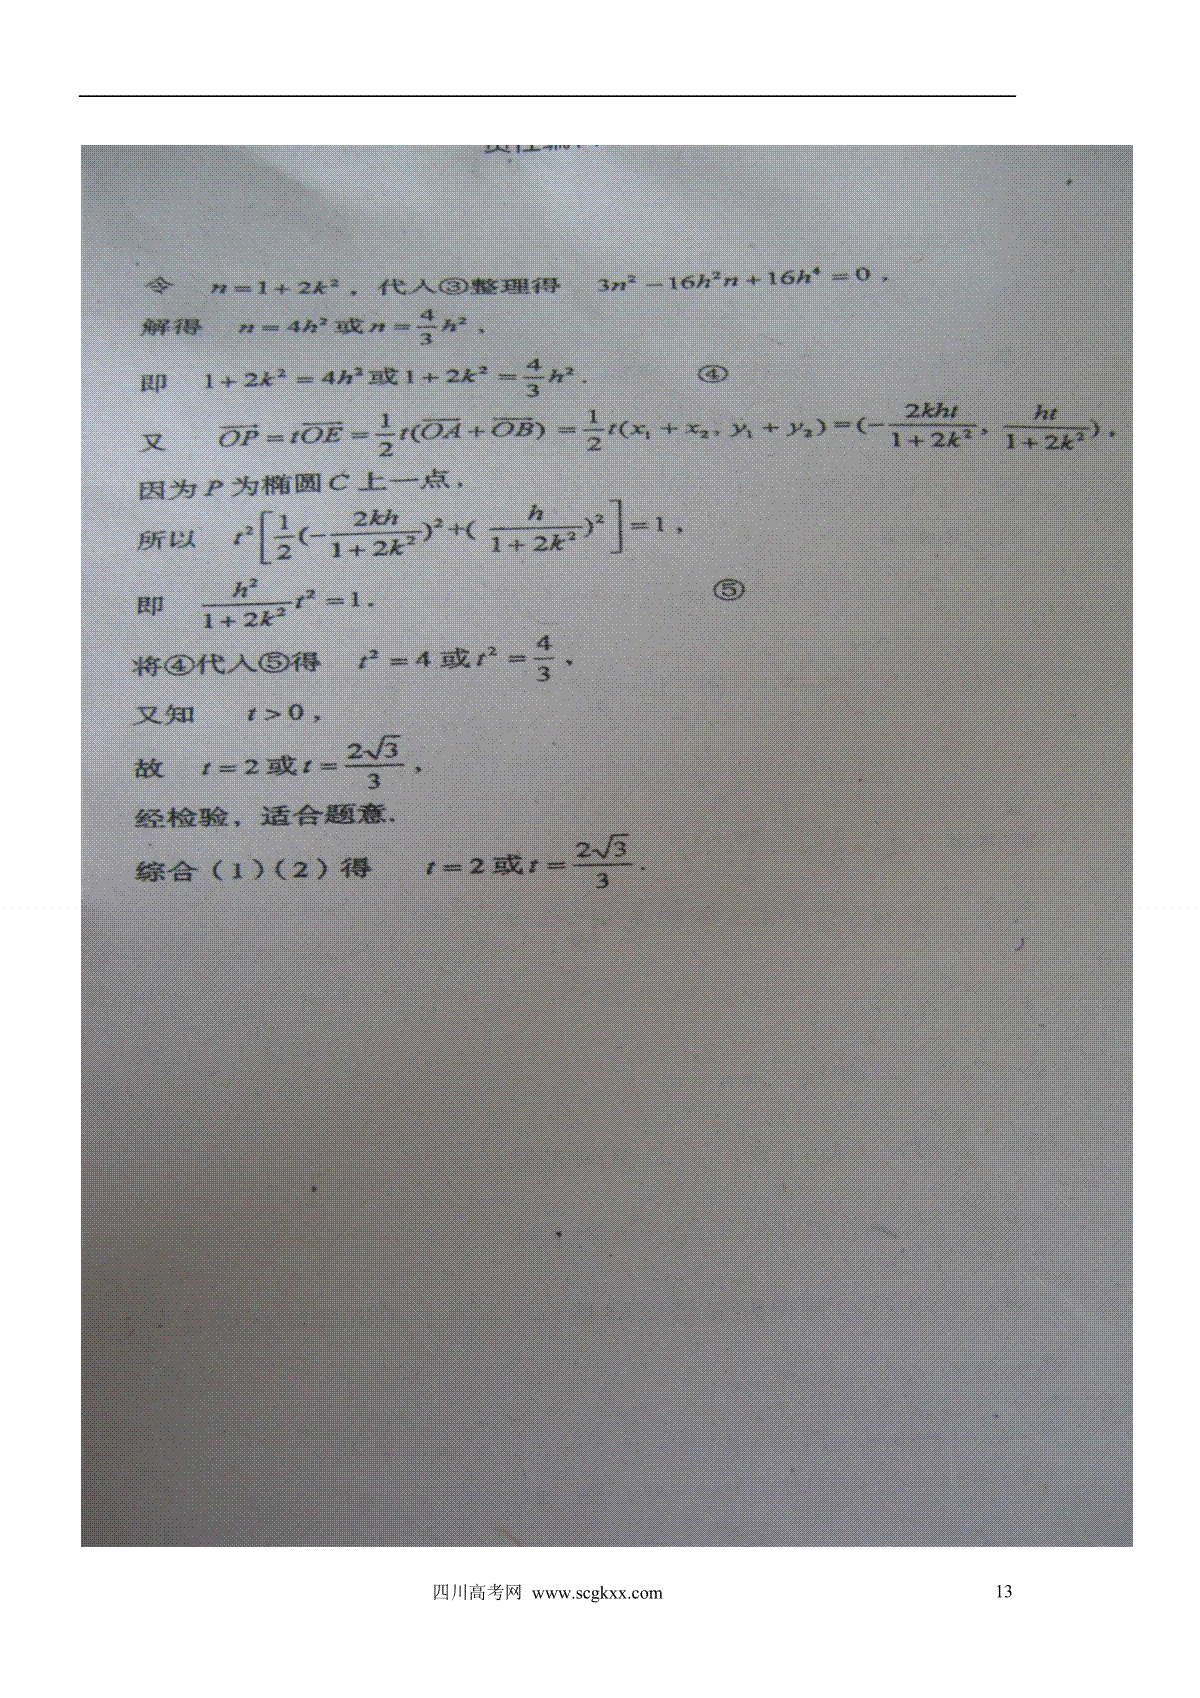 令 n=1+2k²，代入③整理得 3n²－16h²n＋16h⁴＝0，
解得 n=4h²或n=4/3 h²，
即 1+2k²=4h²或1+2k²=4/3 h². ④
又 \overrightarrow{OP}=t\overrightarrow{OE}=1/2 t(\overrightarrow{OA}+\overrightarrow{OB})=1/2 t(x₁+x₂, y₁+y₂)=(-2kht/(1+2k²), ht/(1+2k²))，
因为 P 为椭圆 C 上一点，
所以 t²[1/2(-2kh/(1+2k²))²+(h/(1+2k²))²]=1，
即 h²/(1+2k²) t²=1. ⑤
将④代入⑤得 t²=4 或 t²=4/3，
又知 t>0，
故 t=2 或 t=2√3/3，
经检验，适合题意.
综合（1）（2）得 t=2 或 t=2√3/3.
四川高考网 www.scgkxx.com 13